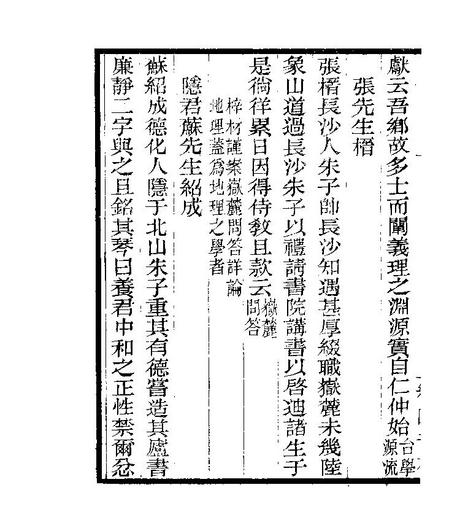 獻云吾鄉故多士而闡義理之淵源實自仁仲始台學源流
張先生㮮
張㮮長沙人朱子帥長沙知遇甚厚綴職嶽麓未幾陸
象山道過長沙朱子以禮請書院講書以啓迪諸生于
是徜徉累日因得侍敎且款云嶽麓問答
梓材謹案嶽麓問答詳論
地理蓋爲地理之學者
隱君蘇先生紹成
蘇紹成德化人隱于北山朱子重其有德嘗造其廬書
廉靜二字與之且銘其琴曰養君中和之正性禁爾忿